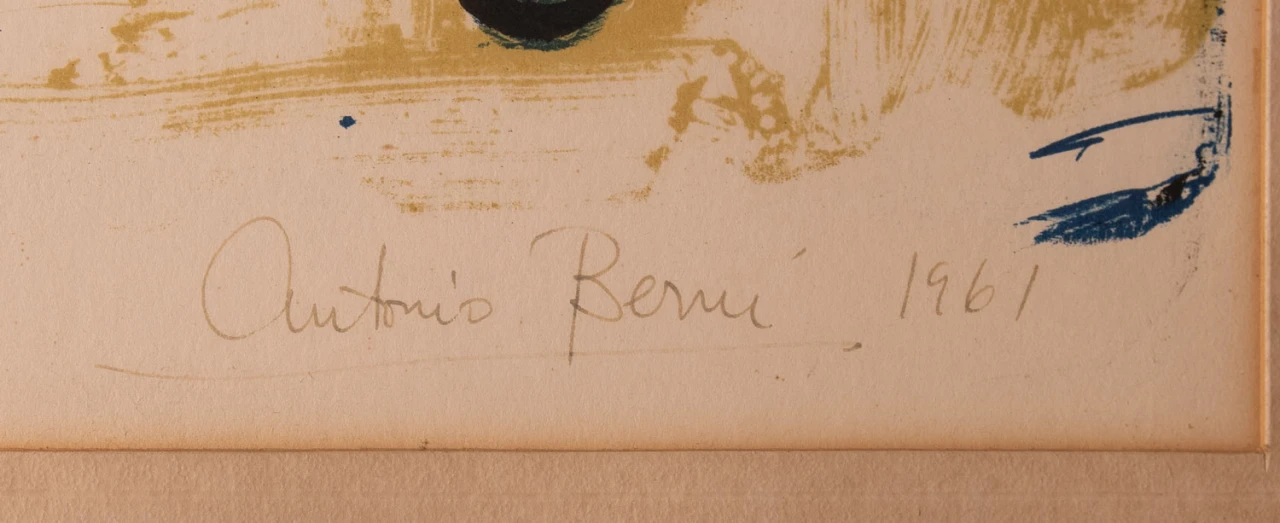 Antonio Berni 1961